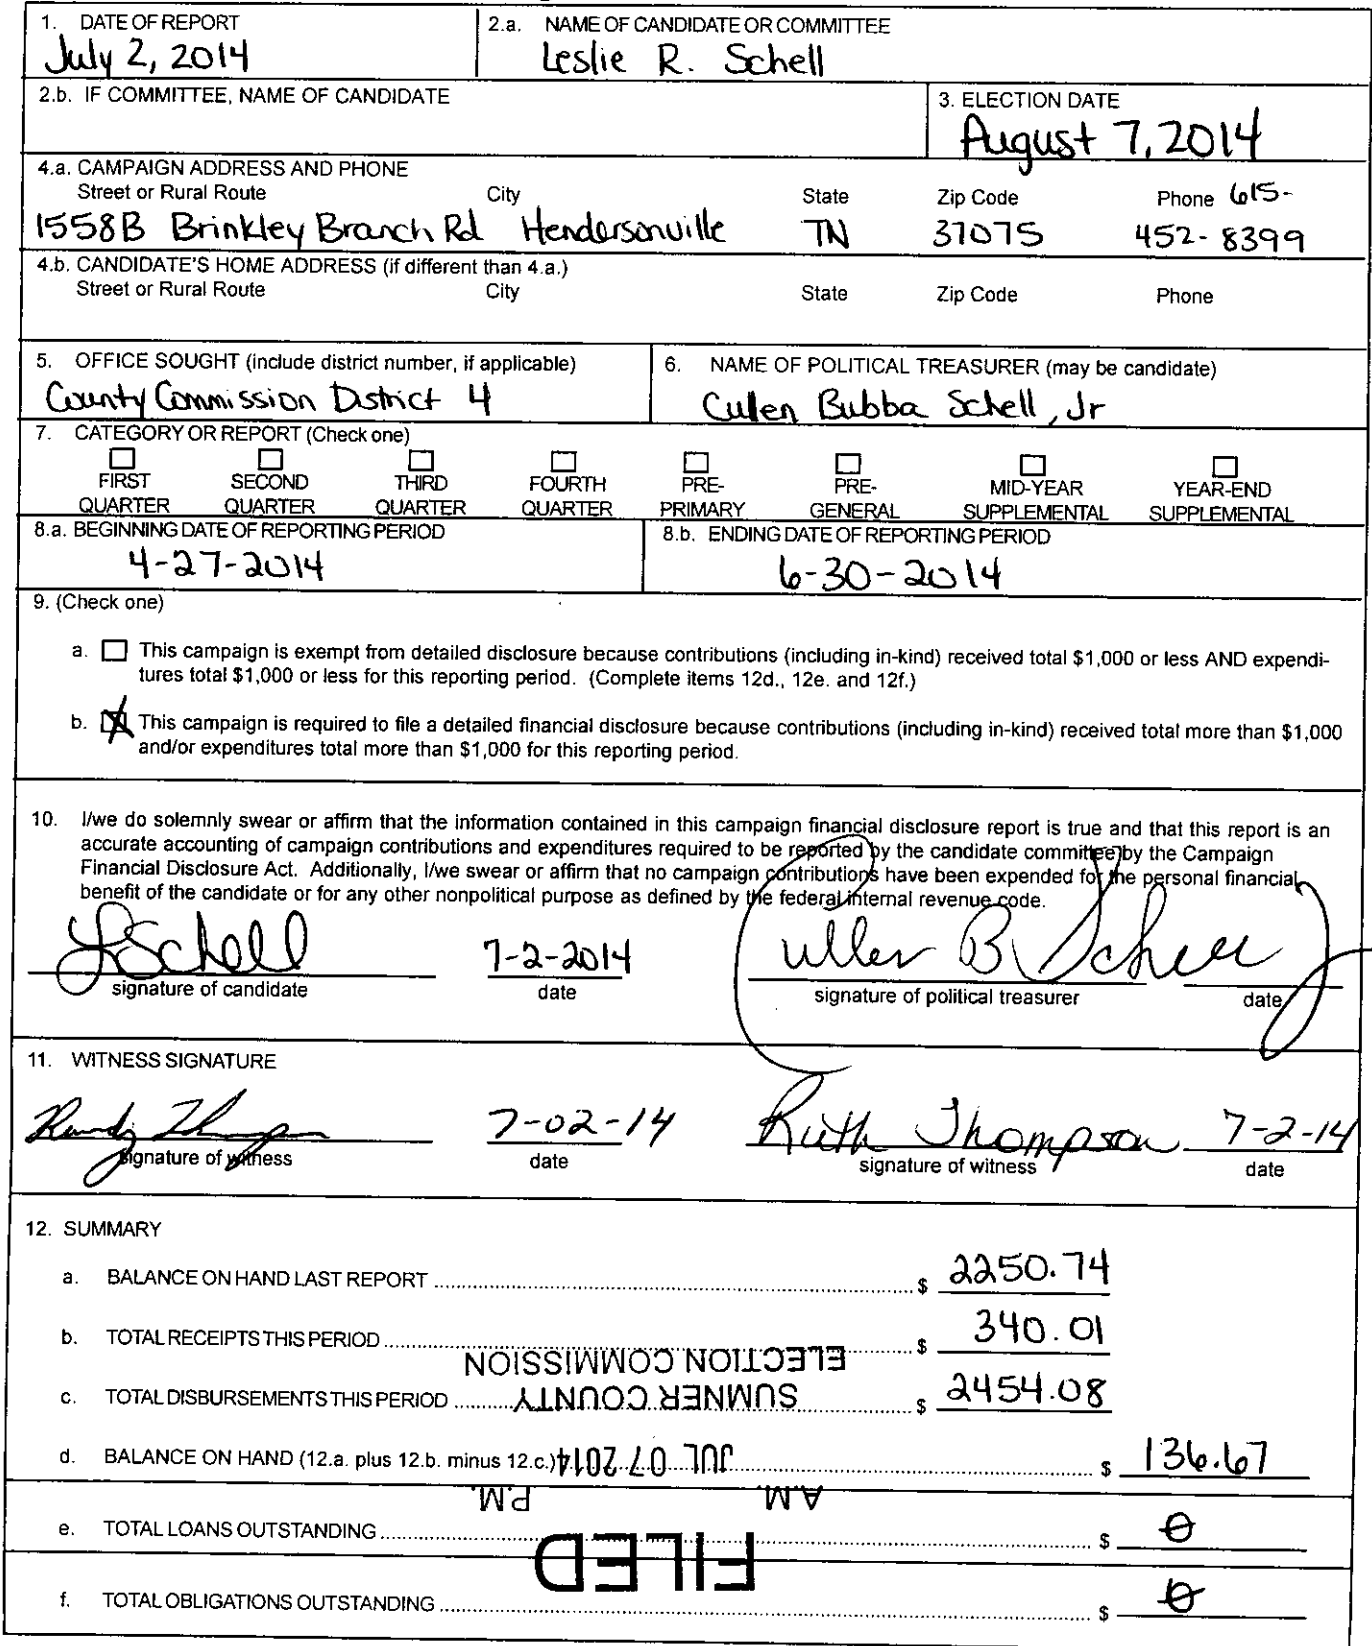 1. DATE OF REPORT
July 2, 2014
2.a. NAME OF CANDIDATE OR COMMITTEE
Leslie R. Schell
2.b. IF COMMITTEE, NAME OF CANDIDATE
3. ELECTION DATE
August 7, 2014
4.a. CAMPAIGN ADDRESS AND PHONE
Street or Rural Route City State Zip Code Phone 615-
1558B Brinkley Branch Rd Hendersonville TN 37075 452-8399
4.b. CANDIDATE'S HOME ADDRESS (if different than 4.a.)
Street or Rural Route City State Zip Code Phone
5. OFFICE SOUGHT (include district number, if applicable)
County Commission District 4
6. NAME OF POLITICAL TREASURER (may be candidate)
Cullen Bubba Schell, Jr
7. CATEGORY OR REPORT (Check one)
FIRST SECOND THIRD FOURTH PRE- PRE- MID-YEAR YEAR-END
QUARTER QUARTER QUARTER QUARTER PRIMARY GENERAL SUPPLEMENTAL SUPPLEMENTAL
8.a. BEGINNING DATE OF REPORTING PERIOD
4-27-2014
8.b. ENDING DATE OF REPORTING PERIOD
6-30-2014
9. (Check one)
a. This campaign is exempt from detailed disclosure because contributions (including in-kind) received total $1,000 or less AND expendi-
tures total $1,000 or less for this reporting period. (Complete items 12d., 12e. and 12f.)
b. This campaign is required to file a detailed financial disclosure because contributions (including in-kind) received total more than $1,000
and/or expenditures total more than $1,000 for this reporting period.
10. I/we do solemnly swear or affirm that the information contained in this campaign financial disclosure report is true and that this report is an
accurate accounting of campaign contributions and expenditures required to be reported by the candidate committee by the Campaign
Financial Disclosure Act. Additionally, I/we swear or affirm that no campaign contributions have been expended for the personal financial
benefit of the candidate or for any other nonpolitical purpose as defined by the federal internal revenue code.
LSchell 7-2-2014 Cullen B Schell
signature of candidate date signature of political treasurer date
11. WITNESS SIGNATURE
Randy Thompson 7-02-14 Ruth Thompson 7-2-14
signature of witness date signature of witness date
12. SUMMARY
a. BALANCE ON HAND LAST REPORT $ 2250.74
b. TOTAL RECEIPTS THIS PERIOD $ 340.01
ELECTION COMMISSION
c. TOTAL DISBURSEMENTS THIS PERIOD $ 2454.08
SUMNER COUNTY
d. BALANCE ON HAND (12.a. plus 12.b. minus 12.c.) $ 136.67
JUL 07 2014
A.M. P.M.
e. TOTAL LOANS OUTSTANDING $ 0
FILED
f. TOTAL OBLIGATIONS OUTSTANDING $ 0